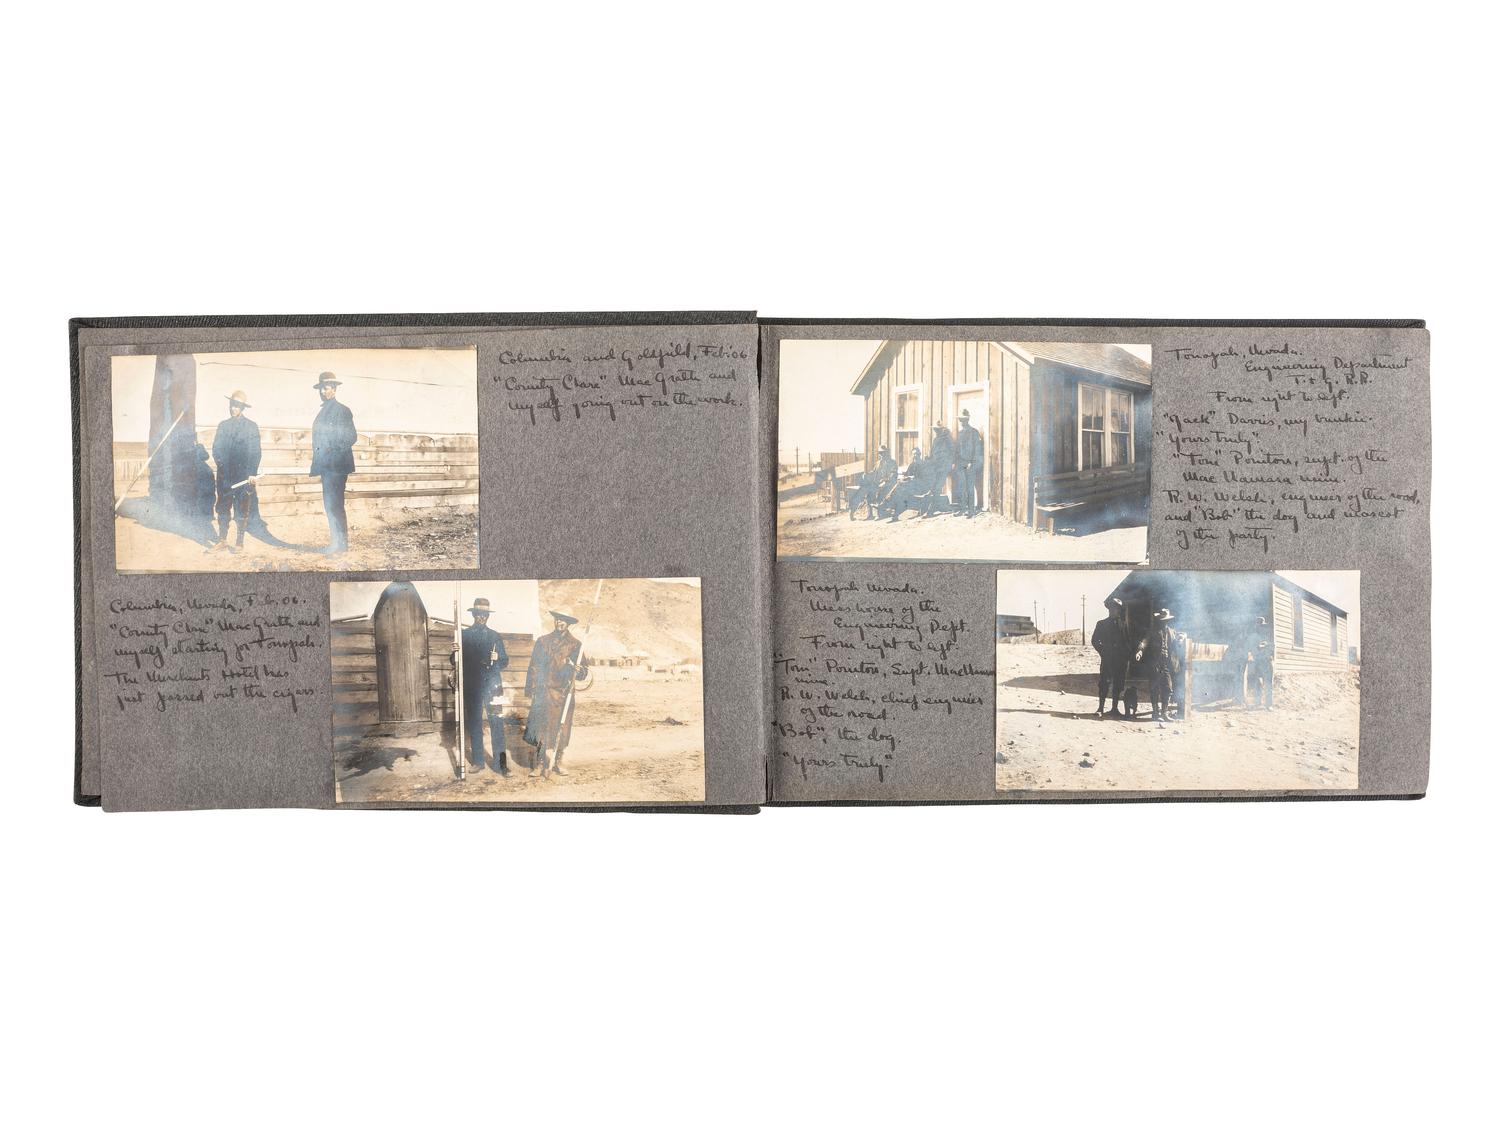 Columbia and Goldfield, Feb. '06
"County Clare" MacGrath and
myself going out on the work.
Columbia, Nevada, Feb. 06.
"County Clare" MacGrath and
myself starting for Tonopah.
The Merchants Hotel has
just passed out the cigars.
Tonopah, Nevada.
Engineering Department
T. & G. R.R.
From right to left.
"Jack" Davis, my bunkie.
"Yours truly".
"Tom" Pointon, supt. of the
Mac Namara mine.
R. W. Welsh, engineer of the road,
and "Bob" the dog and mascot
of the party.
Tonopah Nevada.
Mess house of the
Engineering Dept.
From right to left.
"Tom" Pointon, Supt. MacNamara
mine.
R. W. Welsh, chief engineer
of the road.
"Bob", the dog.
"Yours truly."